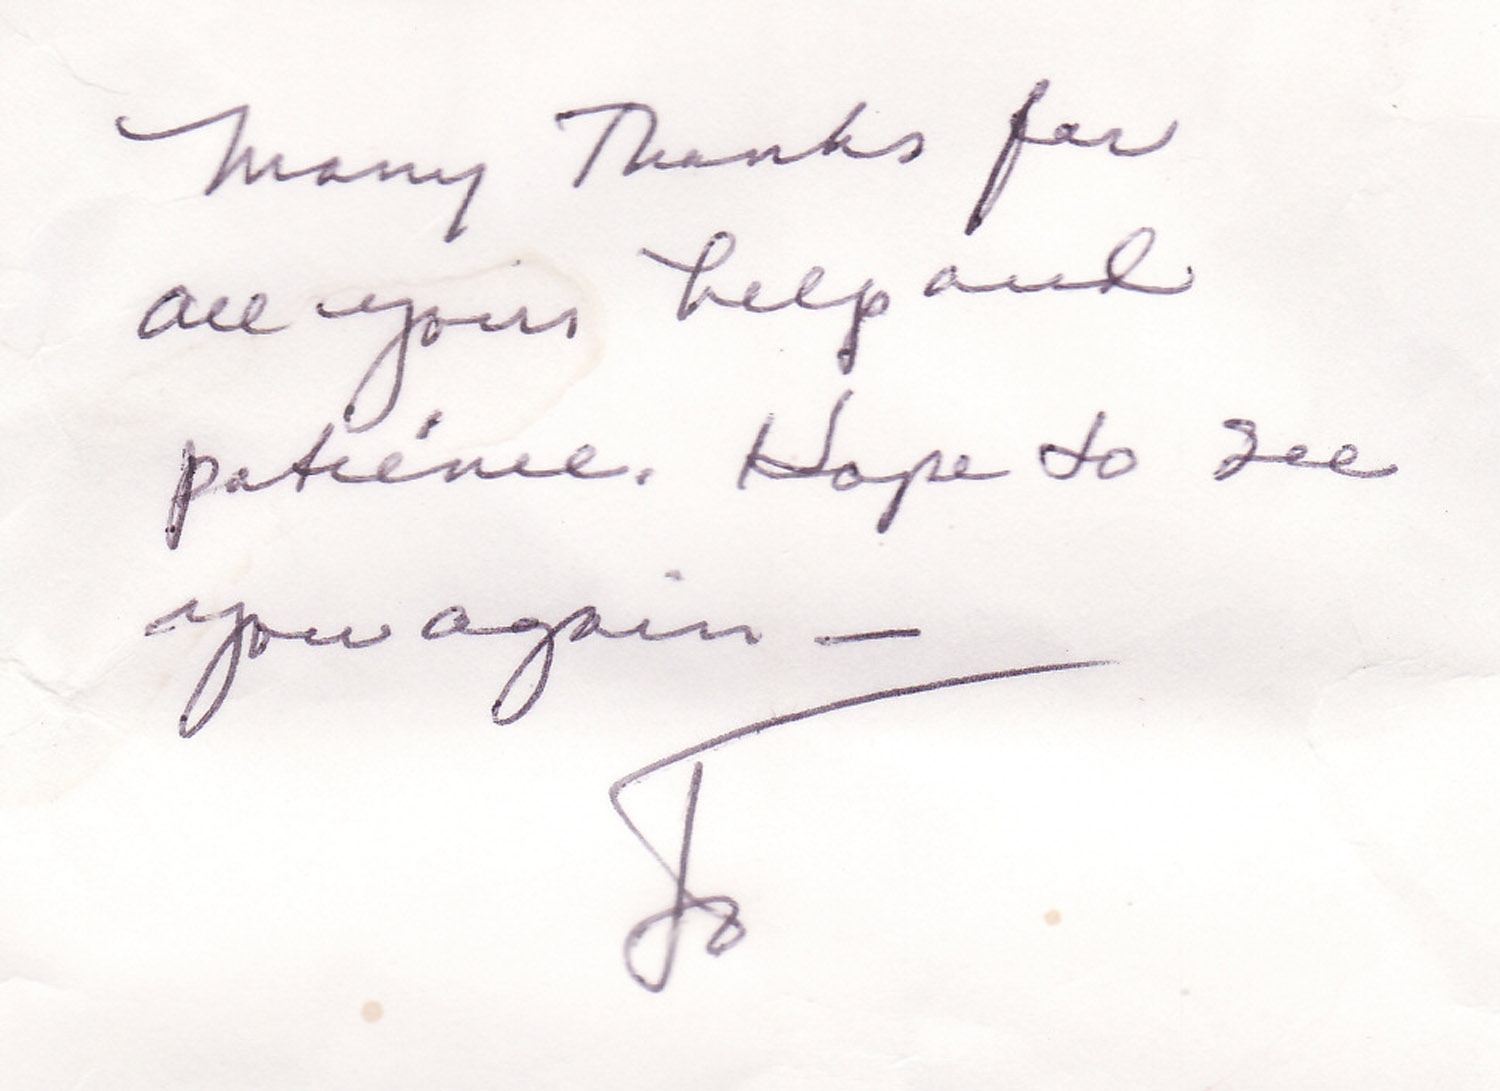 Many Thanks for
all your help and
patience. Hope to see
you again —
Jo